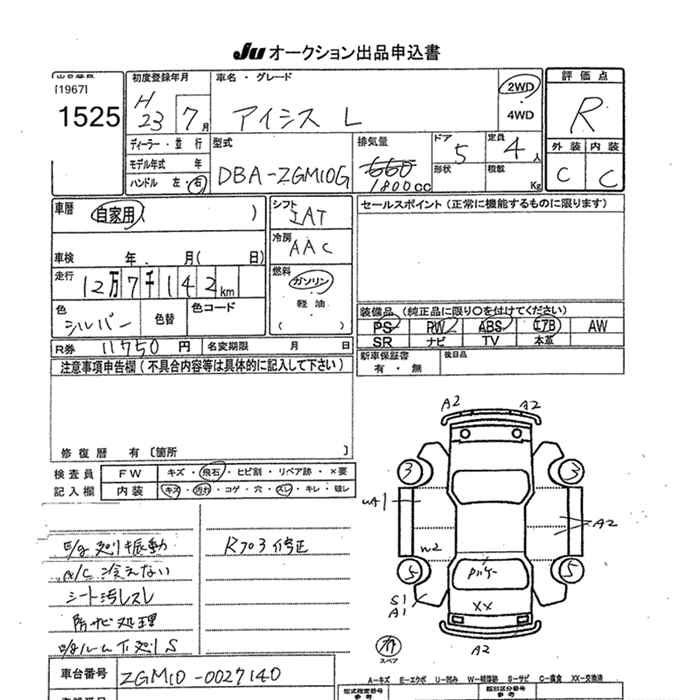 Ju オークション出品申込書
[1967]
1525
初度登録年月
H
23 7 月
車名・グレード
アイシス L
2WD
4WD
評価点
R
外装 内装
C C
ディーラー・並行
モデル年式 年
ハンドル 左・右
型式
DBA-ZGM10G
排気量
660
1800 cc
ドア
5
形状
定員
4 人
積数
Kg
車歴
自家用( )
車検 年 月( 日)
走行
12万7千142km
色
シルバー
色替
色コード
シフト
IAT
冷房
AAC
燃料
ガソリン
軽油
( )
セールスポイント(正常に機能するものに限ります)
装備品(純正品に限り○を付けてください)
PS PW ABS エアB AW
SR ナビ TV 本革
新車保証書
有・無
後日品
R券 11750 円 名変期限 月 日
注意事項申告欄(不具合内容等は具体的に記入して下さい)
修復歴 有〔箇所 〕
検査員
記入欄
FW キズ・飛石・ヒビ割・リペア跡・×要
内装 キズ・汚れ・コゲ・穴・スレ・キレ・破レ
振動
A/C 冷えない
シート汚レスレ
防サビ処理
修正
A2 A2
3 3
UA1
A2
W2
5 5
S1
A1
XX
A2
スペア
車台番号 ZGM10-0027140
A−キズ E−エクボ U−凹み W−補修跡 S−サビ C−腐食 XX−交換済
型式指定番号
参考
類別区分番号
参考